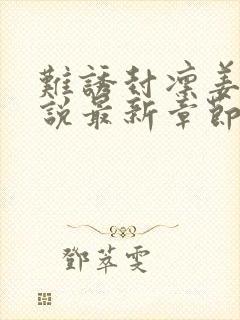 難誘封凜姜
說最新章節
鄧萃雯